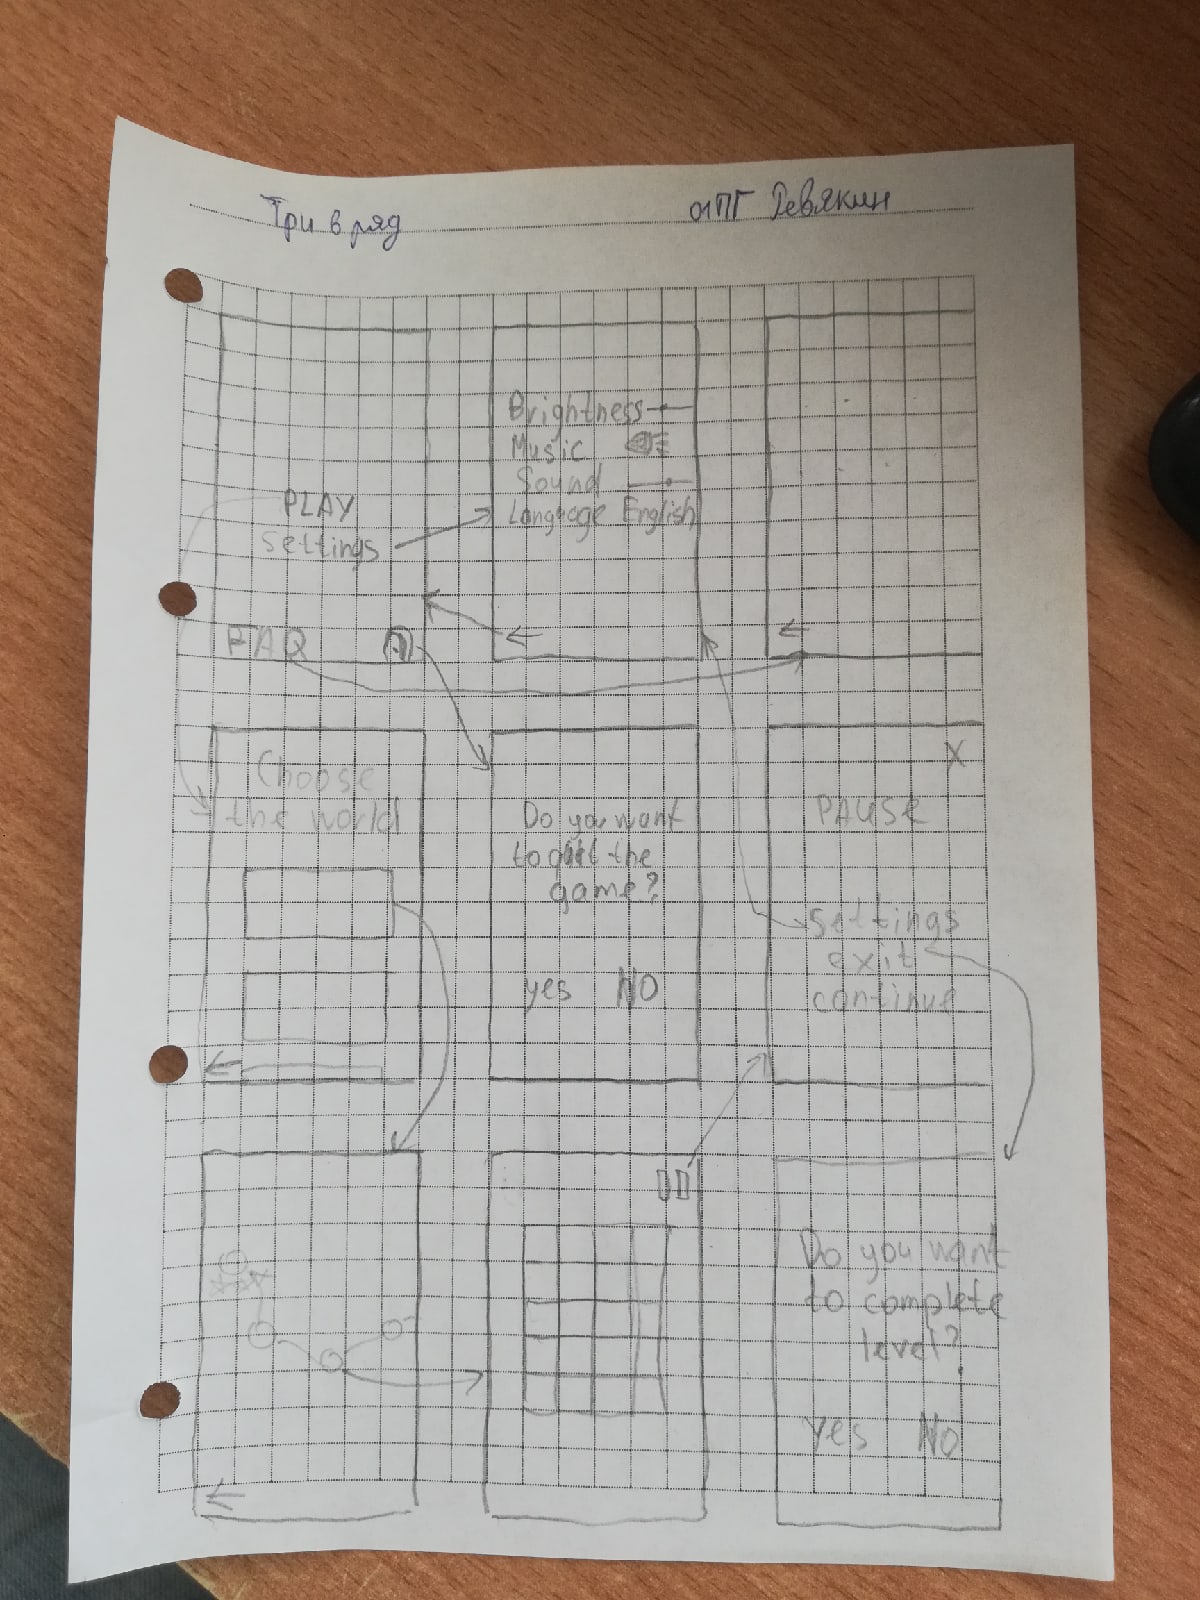 Три в ряд
Ревякин
PLAY
settings
FAQ
Brightness
Music
Sound
Language English
Choose
the world
Do you want
to quit the
game?
yes NO
X
PAUSE
settings
exit
continue
Do you want
to complete
level?
yes No